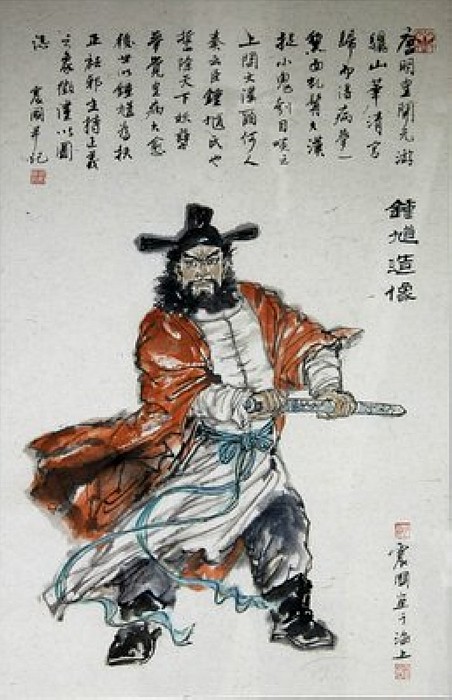 唐明皇開元游
驪山華清宮
歸而得病夢一
黧面虬髯大漢
捉小鬼刳目啖之
上問大漢爾何人
奏云臣鍾馗氏也
誓除天下妖孽
夢覺皇病大愈
後世以鍾馗為扶
正祛邪主持正義
之象徵謹以圖
誌 震國并記
鍾馗造像
震國寫于海上